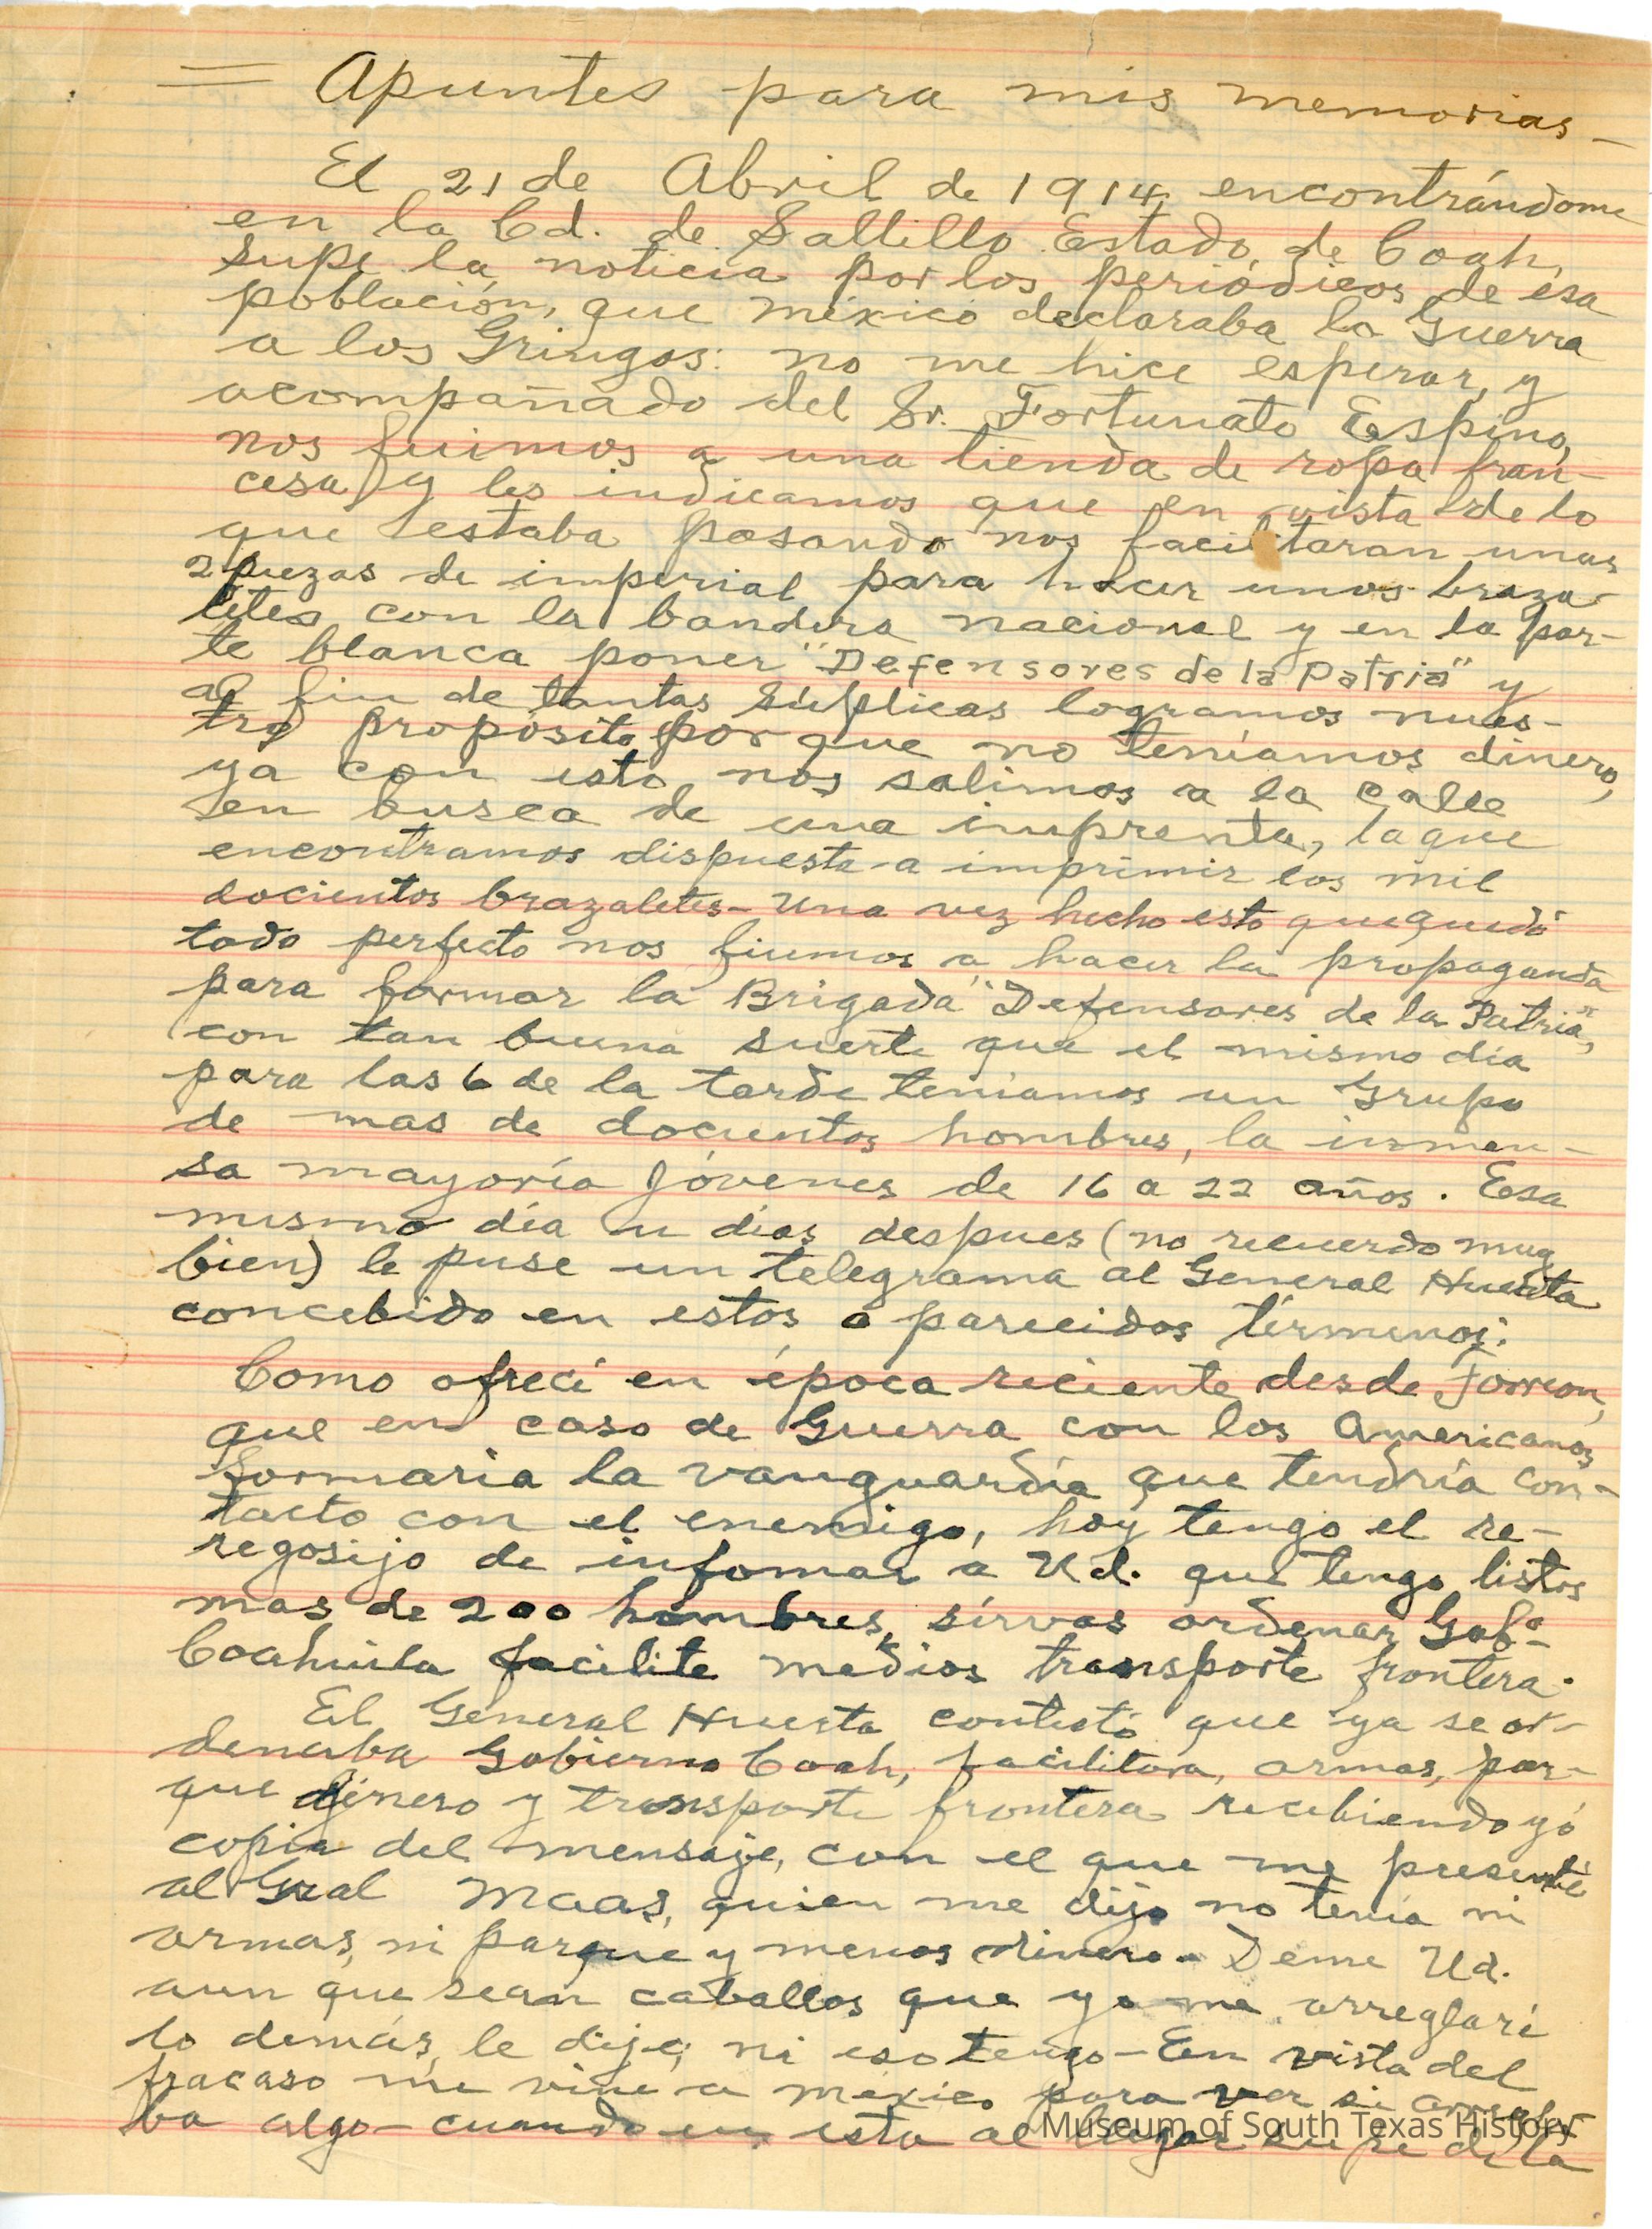 = Apuntes para mis memorias -
El 21 de Abril de 1914, encontrándome
en la Cd. de Saltillo Estado, de Coah,
supe la noticia por los periódicos de esa
población, que méxico declaraba la Guerra
a los Gringos: no me hice esperar, y
acompañado del Sr. Fortunato Espino,
nos fuimos a una tienda de ropa fran-
cesa, y les indicamos que en vista de lo
que estaba pasando nos facilitaran unas
2 piezas de imperial para hacer unos braza-
letes con la bandera nacional y en la par-
te blanca poner "Defensores de la Patria" y
al fin de tantas súplicas logramos nues-
tro propósito por que no teníamos dinero,
ya con esto nos salimos a la calle
en busca de una imprenta, la que
encontramos dispuesta a imprimir los mil
docientos brazaletes - Una vez hecho esto que quedó
todo perfecto nos fiumos a hacer la propaganda
para formar la Brigada "Defensores de la Patria",
con tan buena suerte que el mismo día
para las 6 de la tarde teníamos un Grupo
de mas de docientos hombres, la inmen-
sa mayoría jóvenes de 16 a 22 años. Ese
mismo día u días despues (no recuerdo muy
bien) le puse un telegrama al General Huerta
concebido en estos o parecidos términos:
Como ofrecí en época reciente desde Torreon,
que en caso de Guerra con los Americanos
formaria la vanguardia que tendría con-
tacto con el enemigo, hoy tengo el re-
regosijo de infomar a Ud. que tengo listos
mas de 200 hombres, sírvas ordenar Gobº-
Coahuila facilite medios transporte frontera.
El General Huerta contestó que ya se or-
denaba Gobierno Coah, facilitara, armas, par-
que dinero y transporte frontera recibiendo yó
copia del mensaje, con el que me presenté
al Gral Maas, quien me dijo no tenía ni
armas, ni parque y menos dinero - Deme Ud.
aun que sean caballos que yo me arreglaré
lo demás, le dije; ni eso tengo - En vista del
fracaso me vine a méxico para ver si arregla-
ba algo - cuando en esta al llegar supe de la
Museum of South Texas History